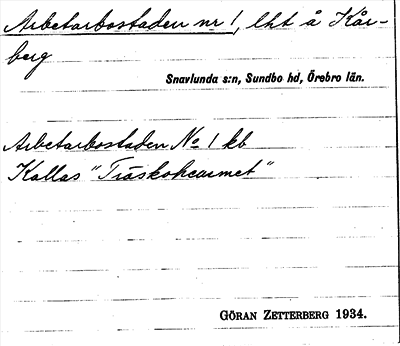 Arbetarbostaden nr 1, lht å Kår-
berg
Snavlunda s:n, Sundbo hd, Örebro län.
Arbetarbostaden No 1 kb
Kallas "Träskohearmet"
GÖRAN ZETTERBERG 1934.